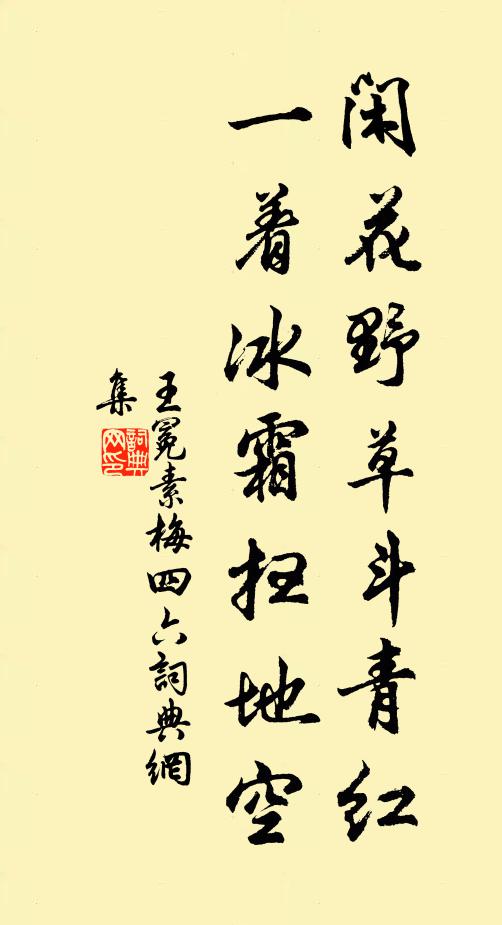 闲花野草斗青红
一着冰霜扫地空
王冕素梅四六詞典網
集
詞典
网印